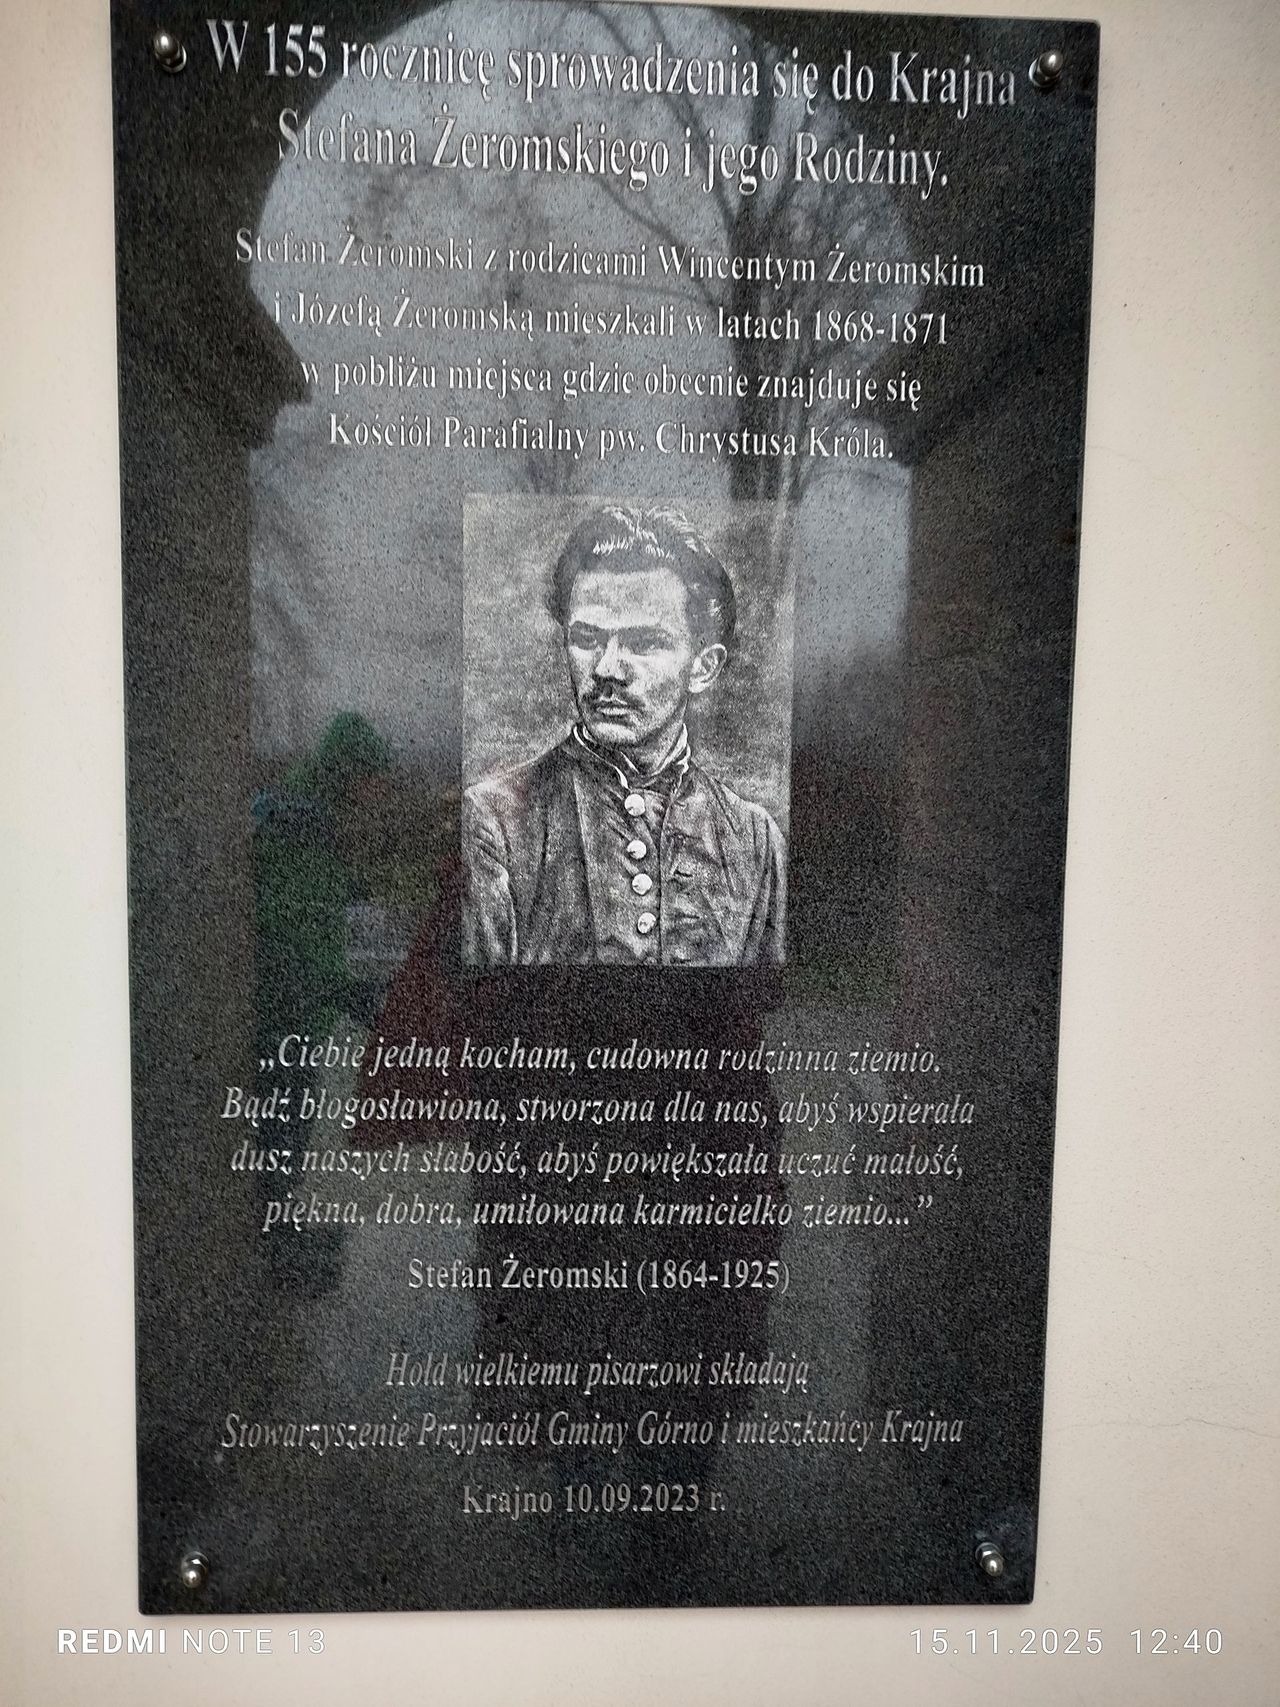 W 155 rocznicę sprowadzenia się do Krajna
Stefana Żeromskiego i jego Rodziny.
Stefan Żeromski z rodzicami Wincentym Żeromskim
i Józefą Żeromską mieszkali w latach 1868-1871
w pobliżu miejsca gdzie obecnie znajduje się
Kościół Parafialny pw. Chrystusa Króla.
„Ciebie jedną kocham, cudowna rodzinna ziemio.
Bądź błogosławiona, stworzona dla nas, abyś wspierała
dusz naszych słabość, abyś powiększała uczuć małość,
piękna, dobra, umiłowana karmicielko ziemio...”
Stefan Żeromski (1864-1925)
Hołd wielkiemu pisarzowi składają
Stowarzyszenie Przyjaciół Gminy Górno i mieszkańcy Krajna
Krajno 10.09.2023 r.
REDMI NOTE 13
15.11.2025 12:40